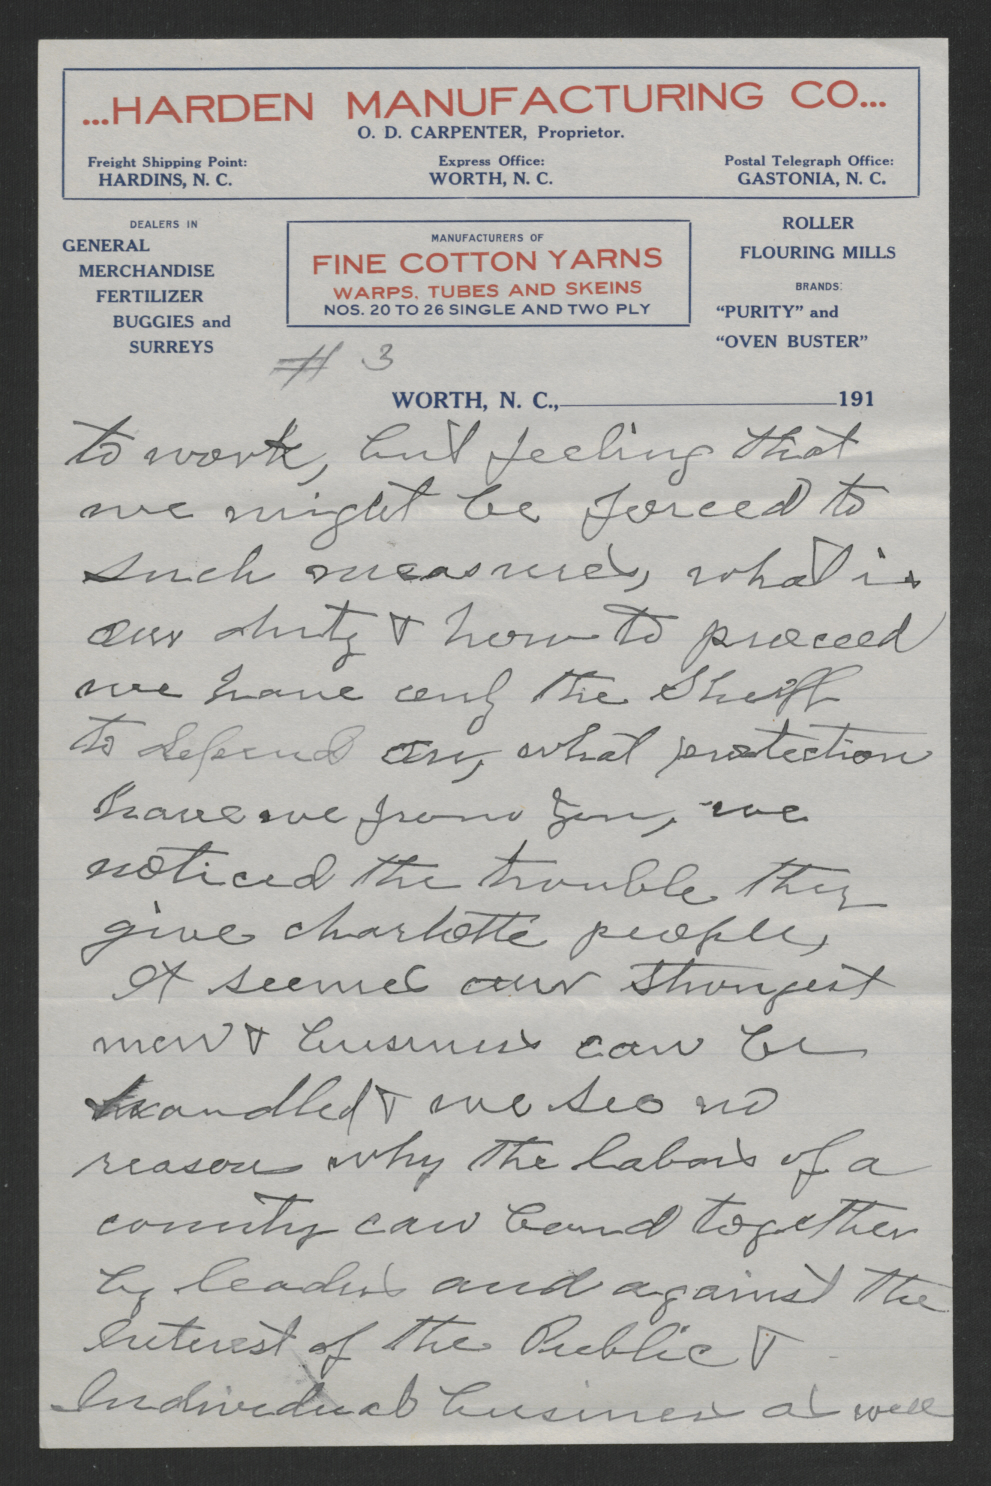 ...HARDEN MANUFACTURING CO...
O. D. CARPENTER, Proprietor.
Freight Shipping Point:
HARDINS, N. C.
Express Office:
WORTH, N. C.
Postal Telegraph Office:
GASTONIA, N. C.
DEALERS IN
GENERAL
MERCHANDISE
FERTILIZER
BUGGIES and
SURREYS
MANUFACTURERS OF
FINE COTTON YARNS
WARPS, TUBES AND SKEINS
NOS. 20 TO 26 SINGLE AND TWO PLY
ROLLER
FLOURING MILLS
BRANDS:
"PURITY" and
"OVEN BUSTER"
# 3
WORTH, N. C., 191
to work, but feeling that
we might be forced to
such measures, what is
our duty & how to proceed
we have only the Sheriff
to defend our, what protection
have we from you, we
noticed the trouble they
give charlotte people,
It seemes our strongest
men & business can be
handled & we see no
reason why the labors of a
county can band together
by leaders and against the
Interest of the Public &
Individual business as well